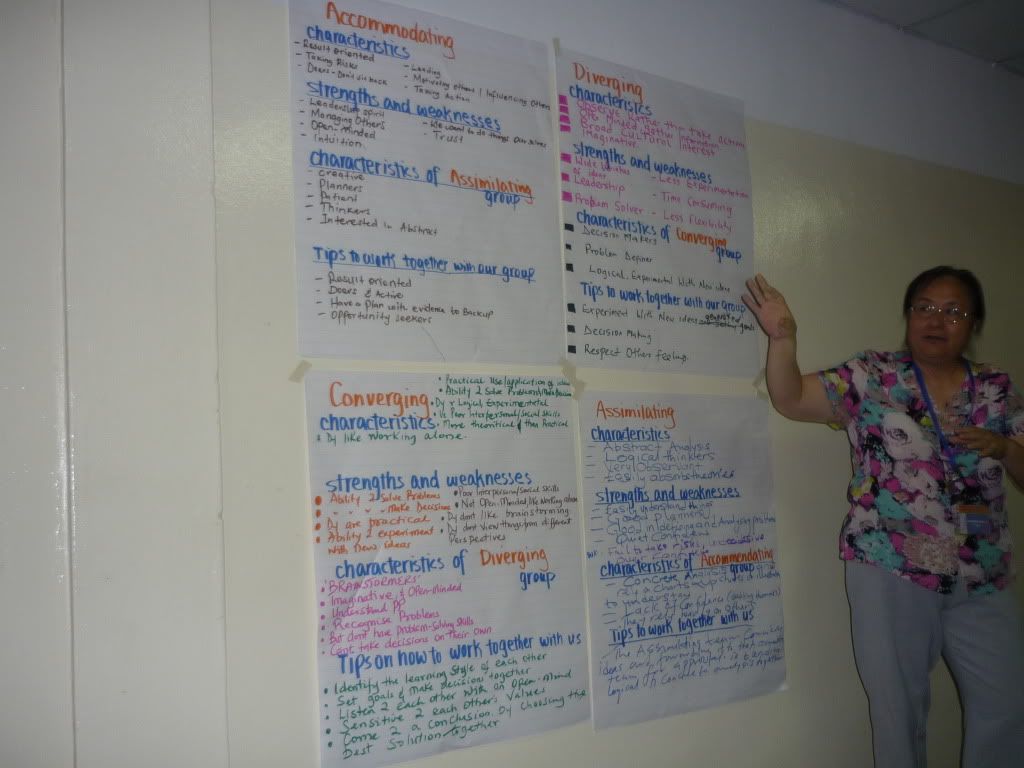 Accommodating
characteristics
- Result Oriented
- Taking Risks
- Doers - Don't sit back
- Leading
- Motivating others / Influencing Others
- Taking Action
strengths and weaknesses
- Leadership spirit
- Managing Others
- Open-Minded
- Intuition.
- We want to do things Our selves
- Trust
characteristics of Assimilating
group
- Creative
- Planners
- Patient
- Thinkers
- Interested in Abstract
Tips to work together with our group
- Result oriented
- Doers & Active
- Have a Plan with evidence to Backup
- Opportunity seekers
Diverging
characteristics
Observe rather than take action
Broad Cultural Interest
Imaginative
strengths and weaknesses
Wide
of ideas
Leadership
Problem Solver
- Less Experimentation
- Time Consuming
- Less flexibility
characteristics of Converging
group
Decision Makers
Problem Definer
Logical, Experimental With New ideas
Tips to work together with our group
Experiment With New ideas generated goals
Decision Making
Respect Other Feeling.
Converging
• Practical Use/application of ideas
• Ability 2 Solve Problems
• Dy r Logical Experimental
• Poor Interpersonal/Social Skills
characteristics
• More theoritical than Practical
• Dy like working alone.
strengths and weaknesses
• Ability 2 Solve Problems
• " " " - Make Decisions
• Dy are practical
• Ability 2 experiment
with New ideas
• Poor Interpersonal/Social Skills
• Not Open-Minded, like working alone
• Dy dont like brainstorming
• Dy dont view things from different
Perspectives
characteristics of Diverging
group
• 'BRAINSTORMERS'
• Imaginative & Open-Minded
• Understand PP
• Recognise Problems
• But dont have problem-solving skills
• Cant take decisions on their own
Tips on how to work together with us
• Identify the learning style of each other
• Set goals & Make decisions together
• Listen 2 each other with an Open-Mind
• Sensitive 2 each others Values
• Come 2 a conclusion by choosing the
best Solution together
Assimilating
characteristics
- Abstract Analysis
- Logical thinkers
- Very Observant
- Easily absorb theories
strengths and weaknesses
- Easily understand things
- Good Planners
- Good in defining and Analysing
- Quiet Confident
- Fail to take risks
characteristics of Accommendating
group
- Concrete Analysis
to understand
- Lack of Confidence
- They rely on others
Tips to work together with us
- The Assimilating team
ideas
team
logical